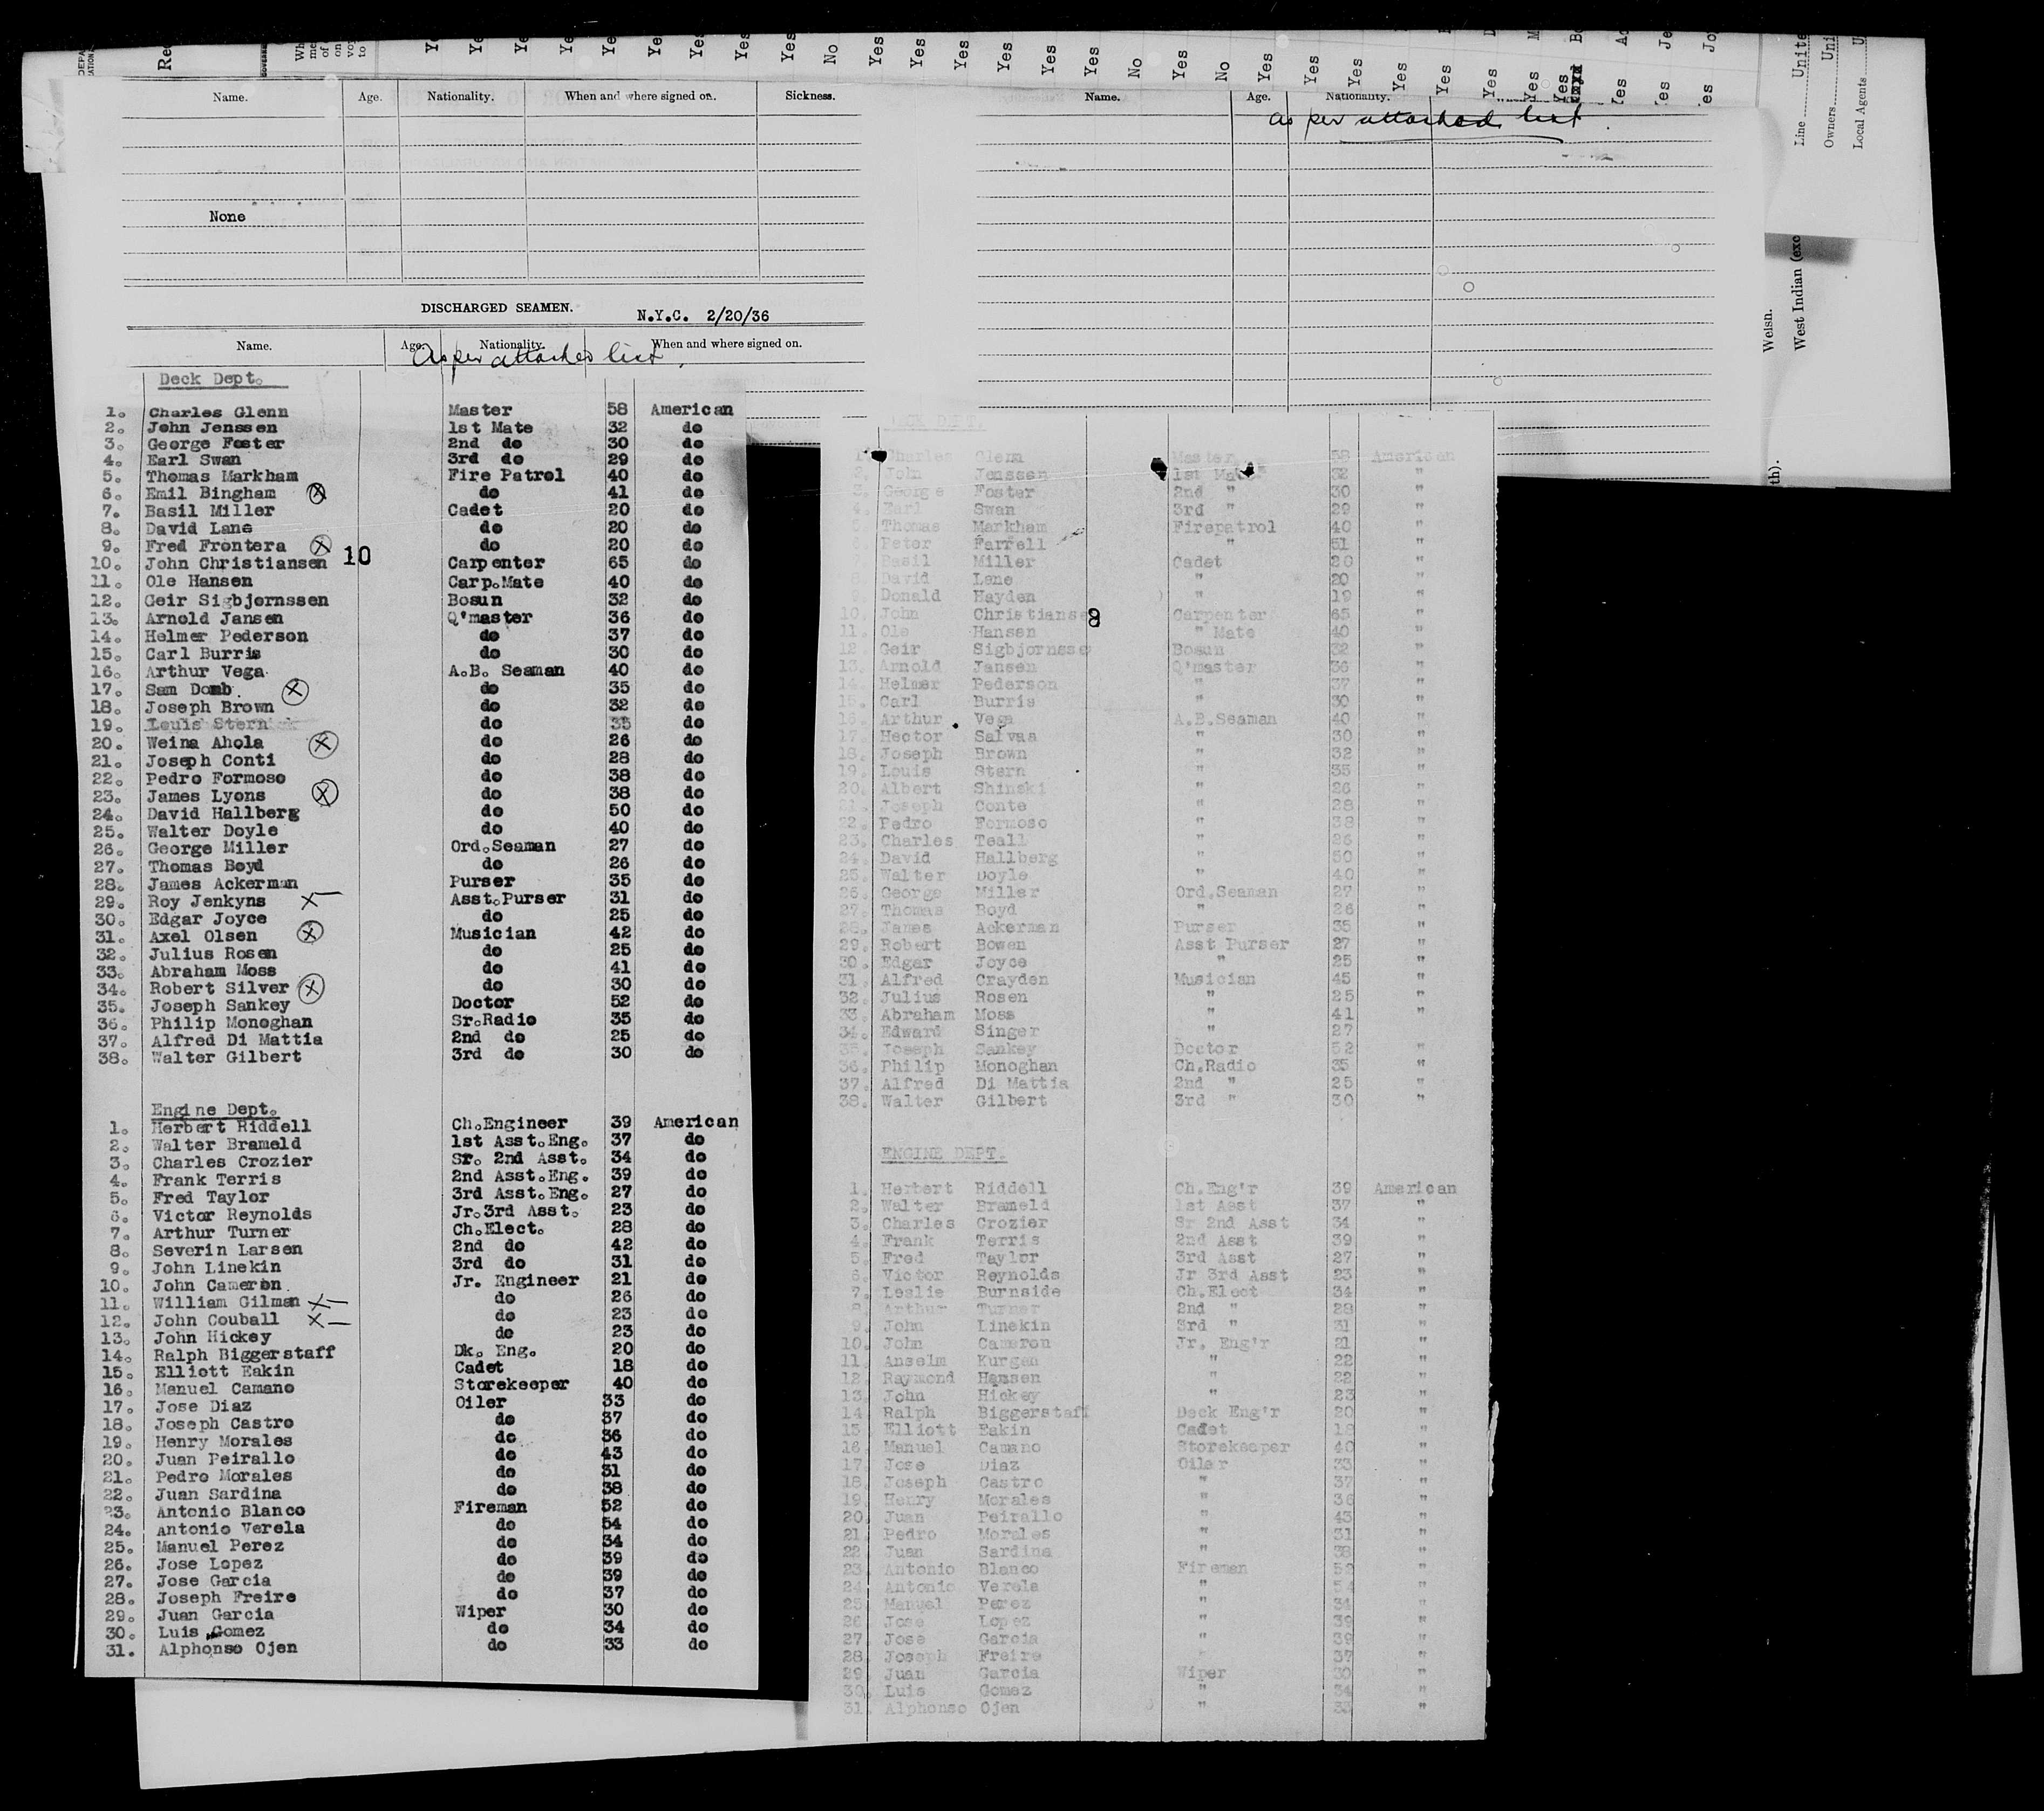 Yes Yes Yes No Yes Yes Yes Yes Yes Yes No Yes No Yes Yes Yes Yes Yes Yes Yes Yes
Name. Age. Nationality. When and where signed on. Sickness.
None
DISCHARGED SEAMEN. N.Y.C. 2/20/36
Name. Age. Nationality. When and where signed on.
As per attached list.
Deck Dept.
1. Charles Glenn Master 58 American
2. John Jenssen 1st Mate 32 do
3. George Foster 2nd do 30 do
4. Earl Swan 3rd do 29 do
5. Thomas Markham Fire Patrol 40 do
6. Emil Bingham X do 41 do
7. Basil Miller Cadet 20 do
8. David Lane do 20 do
9. Fred Frontera X do 20 do
10. John Christiansen 10 Carpenter 65 do
11. Ole Hansen Carp.Mate 40 do
12. Geir Sigbjornssen Bosun 32 do
13. Arnold Jansen Q'master 36 do
14. Helmer Pederson do 37 do
15. Carl Burris do 30 do
16. Arthur Vega A.B. Seaman 40 do
17. Sam Domb. X do 35 do
18. Joseph Brown do 32 do
19. Louis Stern do 35 do
20. Weina Ahola X do 26 do
21. Joseph Conti do 28 do
22. Pedro Formoso do 38 do
23. James Lyons X do 38 do
24. David Hallberg do 50 do
25. Walter Doyle do 40 do
26. George Miller Ord.Seaman 27 do
27. Thomas Boyd do 26 do
28. James Ackerman Purser 35 do
29. Roy Jenkyns X Asst.Purser 31 do
30. Edgar Joyce do 25 do
31. Axel Olsen X Musician 42 do
32. Julius Rosen do 25 do
33. Abraham Moss do 41 do
34. Robert Silver X do 30 do
35. Joseph Sankey Doctor 52 do
36. Philip Monoghan Sr.Radio 35 do
37. Alfred Di Mattia 2nd do 25 do
38. Walter Gilbert 3rd do 30 do
Engine Dept.
1. Herbert Riddell Ch.Engineer 39 American
2. Walter Brameld 1st Asst.Eng. 37 do
3. Charles Crozier Sr. 2nd Asst. 34 do
4. Frank Terris 2nd Asst.Eng. 39 do
5. Fred Taylor 3rd Asst.Eng. 27 do
6. Victor Reynolds Jr.3rd Asst. 23 do
7. Arthur Turner Ch.Elect. 28 do
8. Severin Larsen 2nd do 42 do
9. John Linekin 3rd do 31 do
10. John Cameron. Jr. Engineer 21 do
11. William Gilman X— do 26 do
12. John Couball X— do 23 do
13. John Hickey do 23 do
14. Ralph Biggerstaff Dk. Eng. 20 do
15. Elliott Eakin Cadet 18 do
16. Manuel Camano Storekeeper 40 do
17. Jose Diaz Oiler 33 do
18. Joseph Castro do 37 do
19. Henry Morales do 36 do
20. Juan Peirallo do 43 do
21. Pedro Morales do 31 do
22. Juan Sardina do 38 do
23. Antonio Blanco Fireman 52 do
24. Antonio Verela do 54 do
25. Manuel Perez do 34 do
26. Jose Lopez do 39 do
27. Jose Garcia do 39 do
28. Joseph Freire do 37 do
29. Juan Garcia Wiper 30 do
30. Luis Gomez do 34 do
31. Alphonso Ojen do 33 do
Name. Age. Nationality.
as per attached list.
DECK DEPT.
1. Charles Glenn Master 58 American
2. John Jenssen 1st Mate 32 "
3. George Foster 2nd " 30 "
4. Earl Swan 3rd " 29 "
5. Thomas Markham Firepatrol 40 "
Peter Farrell " 51 "
7. Basil Miller Cadet 20 "
8. David Lane " 20 "
9. Donald Hayden " 19 "
10. John Christiansen 8 Carpenter 65 "
11. Ole Hansen " Mate 40 "
12. Geir Sigbjornssen Bosun 32 "
13. Arnold Jansen Q'master 36 "
14. Helmer Pederson " 37 "
15. Carl Burris " 30 "
16. Arthur Vega A.B.Seaman 40 "
17. Hector Salvas " 30 "
18. Joseph Brown " 32 "
19. Louis Stern " 35 "
20. Albert Shinski " 26 "
21. Joseph Conte " 28 "
22. Pedro Formoso " 38 "
23. Charles Teall " 26 "
24. David Hallberg " 50 "
25. Walter Doyle " 40 "
26. George Miller Ord.Seaman 27 "
27. Thomas Boyd " 26 "
28. James Ackerman Purser 35 "
29. Robert Bowen Asst Purser 27 "
30. Edgar Joyce " 25 "
31. Alfred Crayden Musician 45 "
32. Julius Rosen " 25 "
33. Abraham Moss " 41 "
34. Edward Singer " 27 "
35. Joseph Sankey Doctor 52 "
36. Philip Monoghan Ch.Radio 35 "
37. Alfred Di Mattia 2nd " 25 "
38. Walter Gilbert 3rd " 30 "
ENGINE DEPT.
1. Herbert Riddell Ch.Eng'r 39 American
2. Walter Brameld 1st Asst 37 "
3. Charles Crozier Sr 2nd Asst 34 "
4. Frank Terris 2nd Asst 39 "
5. Fred Taylor 3rd Asst 27 "
6. Victor Reynolds Jr 3rd Asst 23 "
7. Leslie Burnside Ch.Elect 34 "
8. Arthur Turner 2nd " 28 "
9. John Linekin 3rd " 31 "
10. John Cameron Jr. Eng'r 21 "
11. Anselm Kurgan " 22 "
12. Raymond Hansen " 22 "
13. John Hickey " 23 "
14. Ralph Biggerstaff Deck Eng'r 20 "
15. Elliott Eakin Cadet 18 "
16. Manuel Camano Storekeeper 40 "
17. Jose Diaz Oiler 33 "
18. Joseph Castro " 37 "
19. Henry Morales " 36 "
20. Juan Peirallo " 43 "
21. Pedro Morales " 31 "
22. Juan Sardina " 38 "
23. Antonio Blanco Fireman 52 "
24. Antonio Verela " 54 "
25. Manuel Perez " 34 "
26. Jose Lopez " 39 "
27. Jose Garcia " 39 "
28. Joseph Freire " 37 "
29. Juan Garcia Wiper 30 "
30. Luis Gomez " 34 "
31. Alphonso Ojen " 33 "
Line
Owners
Local Agents
West Indian (exc